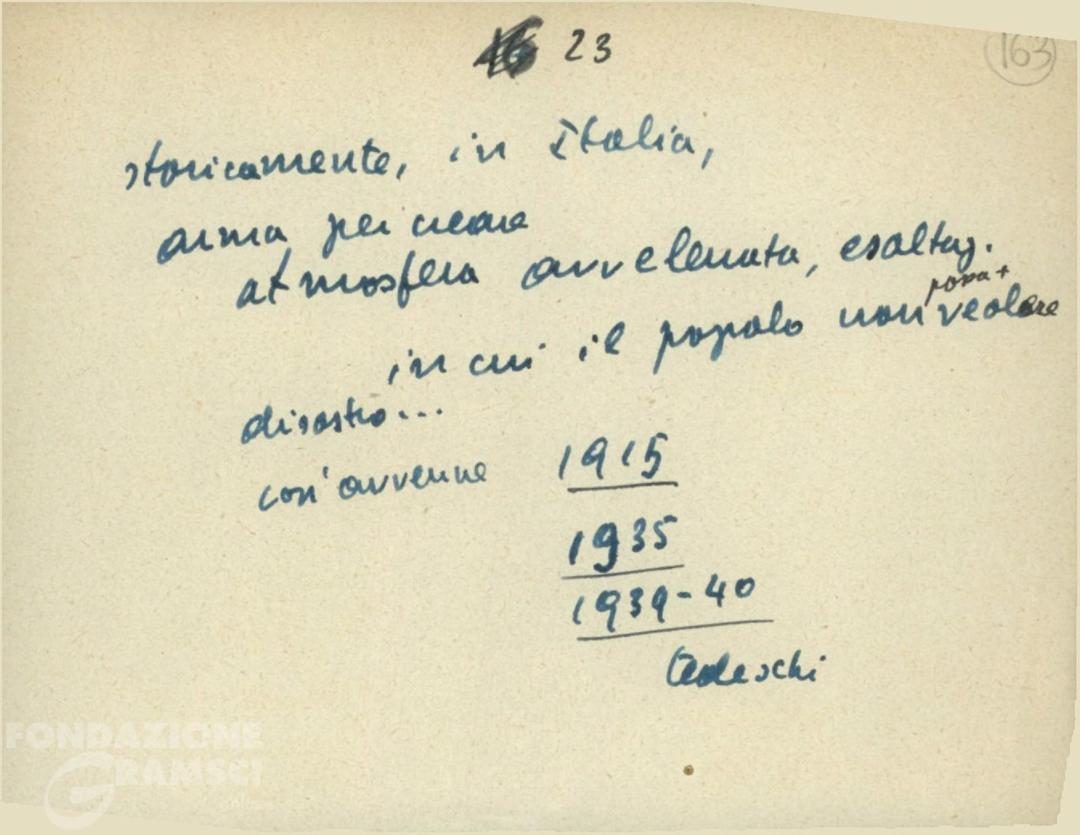 23
163
storicamente, in Italia,
arma per creare
atmosfera avvelenata, esaltaz.
in cui il popolo non possa + vedere
disastro...
così avvenne 1915
1935
1939-40
tedeschi
FONDAZIONE
GRAMSCI